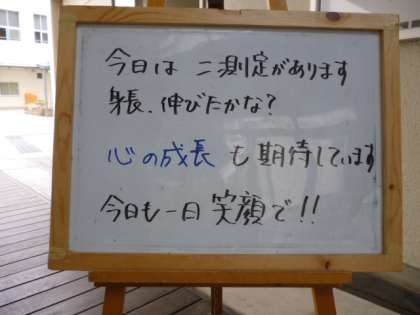 今日は 二測定があります
身長、伸びたかな?
心の成長も期待しています
今日も一日 笑顔で!!